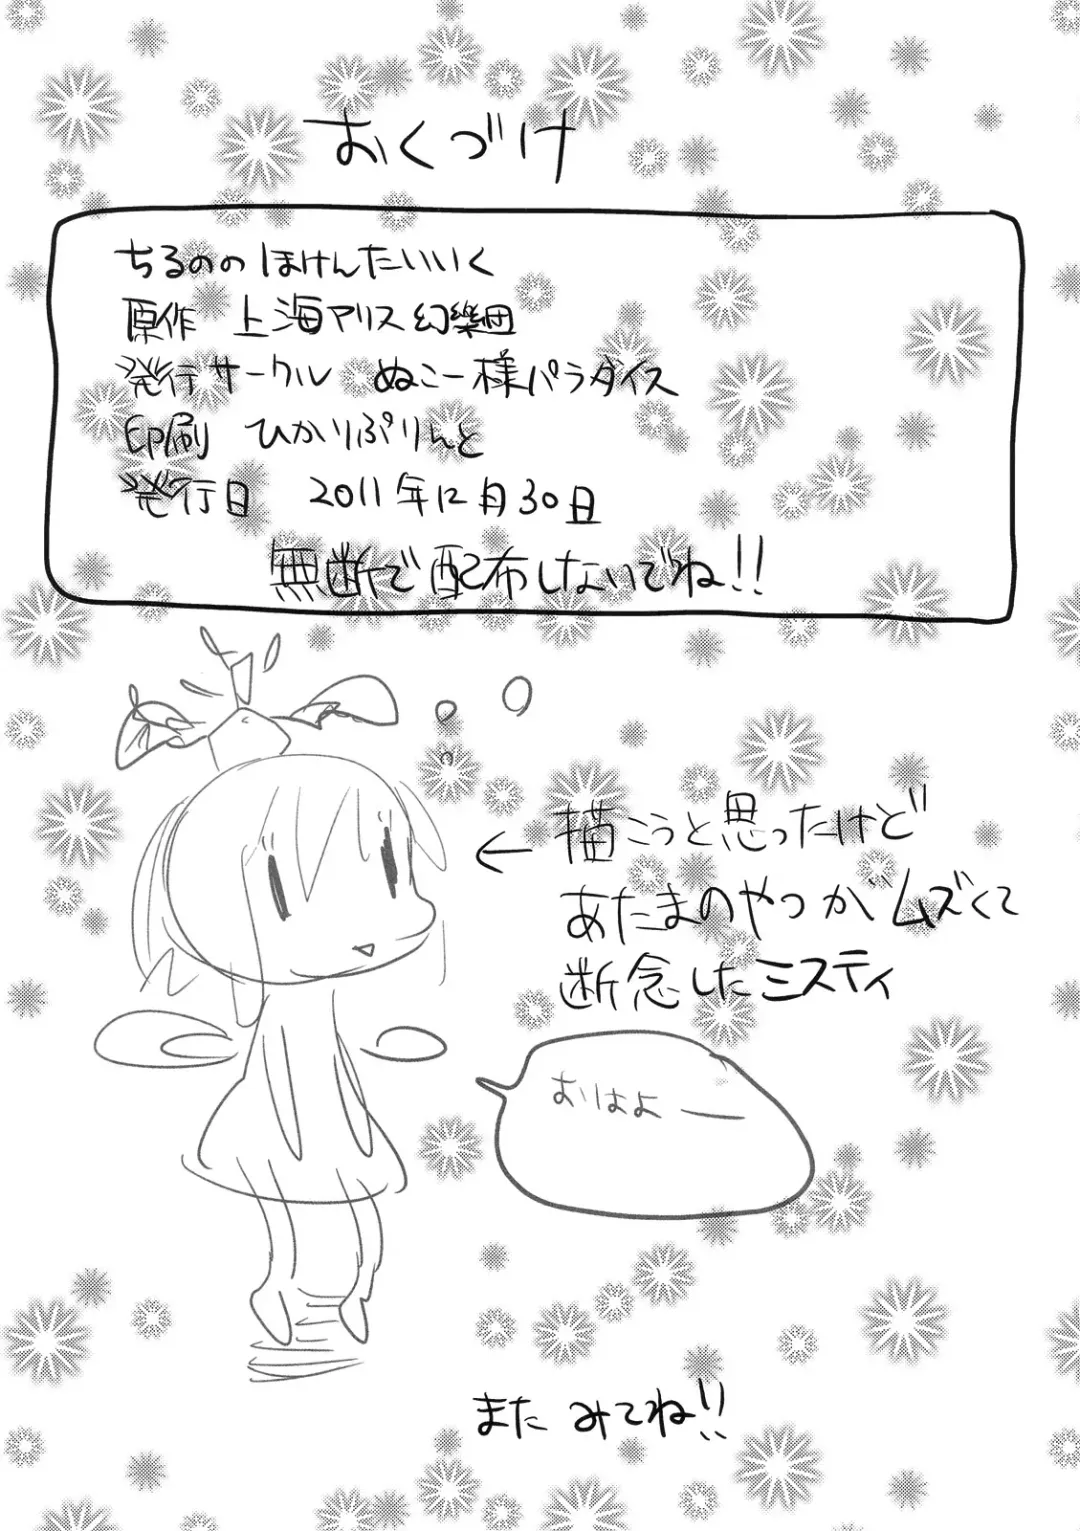 おくづけ
ちるののほけんたいいく
原作 上海アリス幻樂団
発行サークル ぬこー様パラダイス
印刷 ひかりぷりんと
発行日 2011年12月30日
無断で配布しないでね!!
← 描こうと思ったけど
あたまのやつがムズくて
断念したミスティ
おはよー
また みてね!!